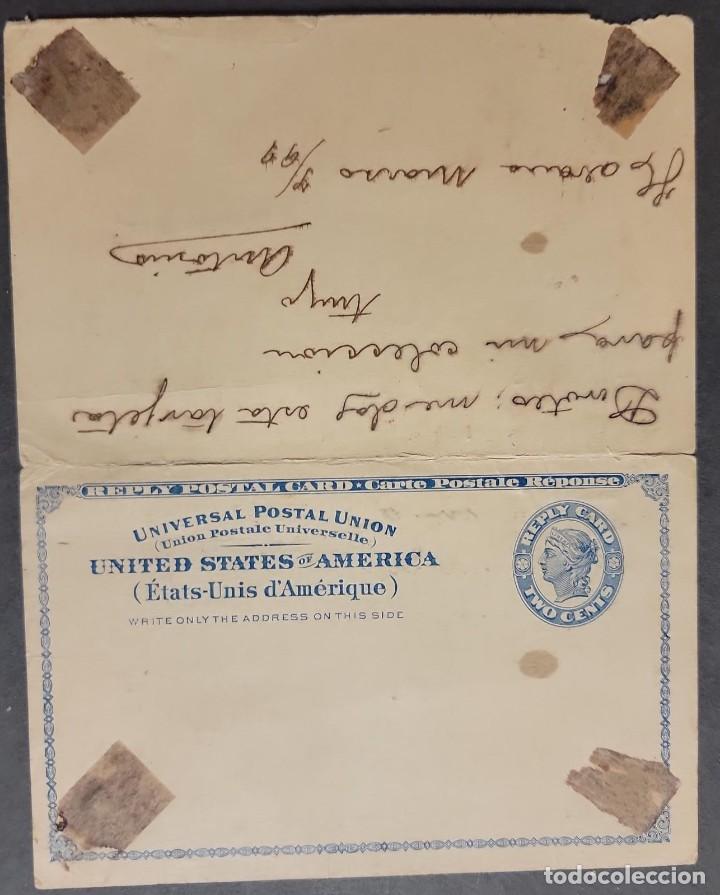 Habana Marzo 8/99
Benites; me das esta tarjeta
para mi colección
Tuyo
Antonio
REPLY POSTAL CARD ★ Carte Postale Réponse
UNIVERSAL POSTAL UNION
(Union Postale Universelle)
UNITED STATES OF AMERICA
(États-Unis d'Amérique)
WRITE ONLY THE ADDRESS ON THIS SIDE
REPLY CARD
TWO CENTS
todocoleccion